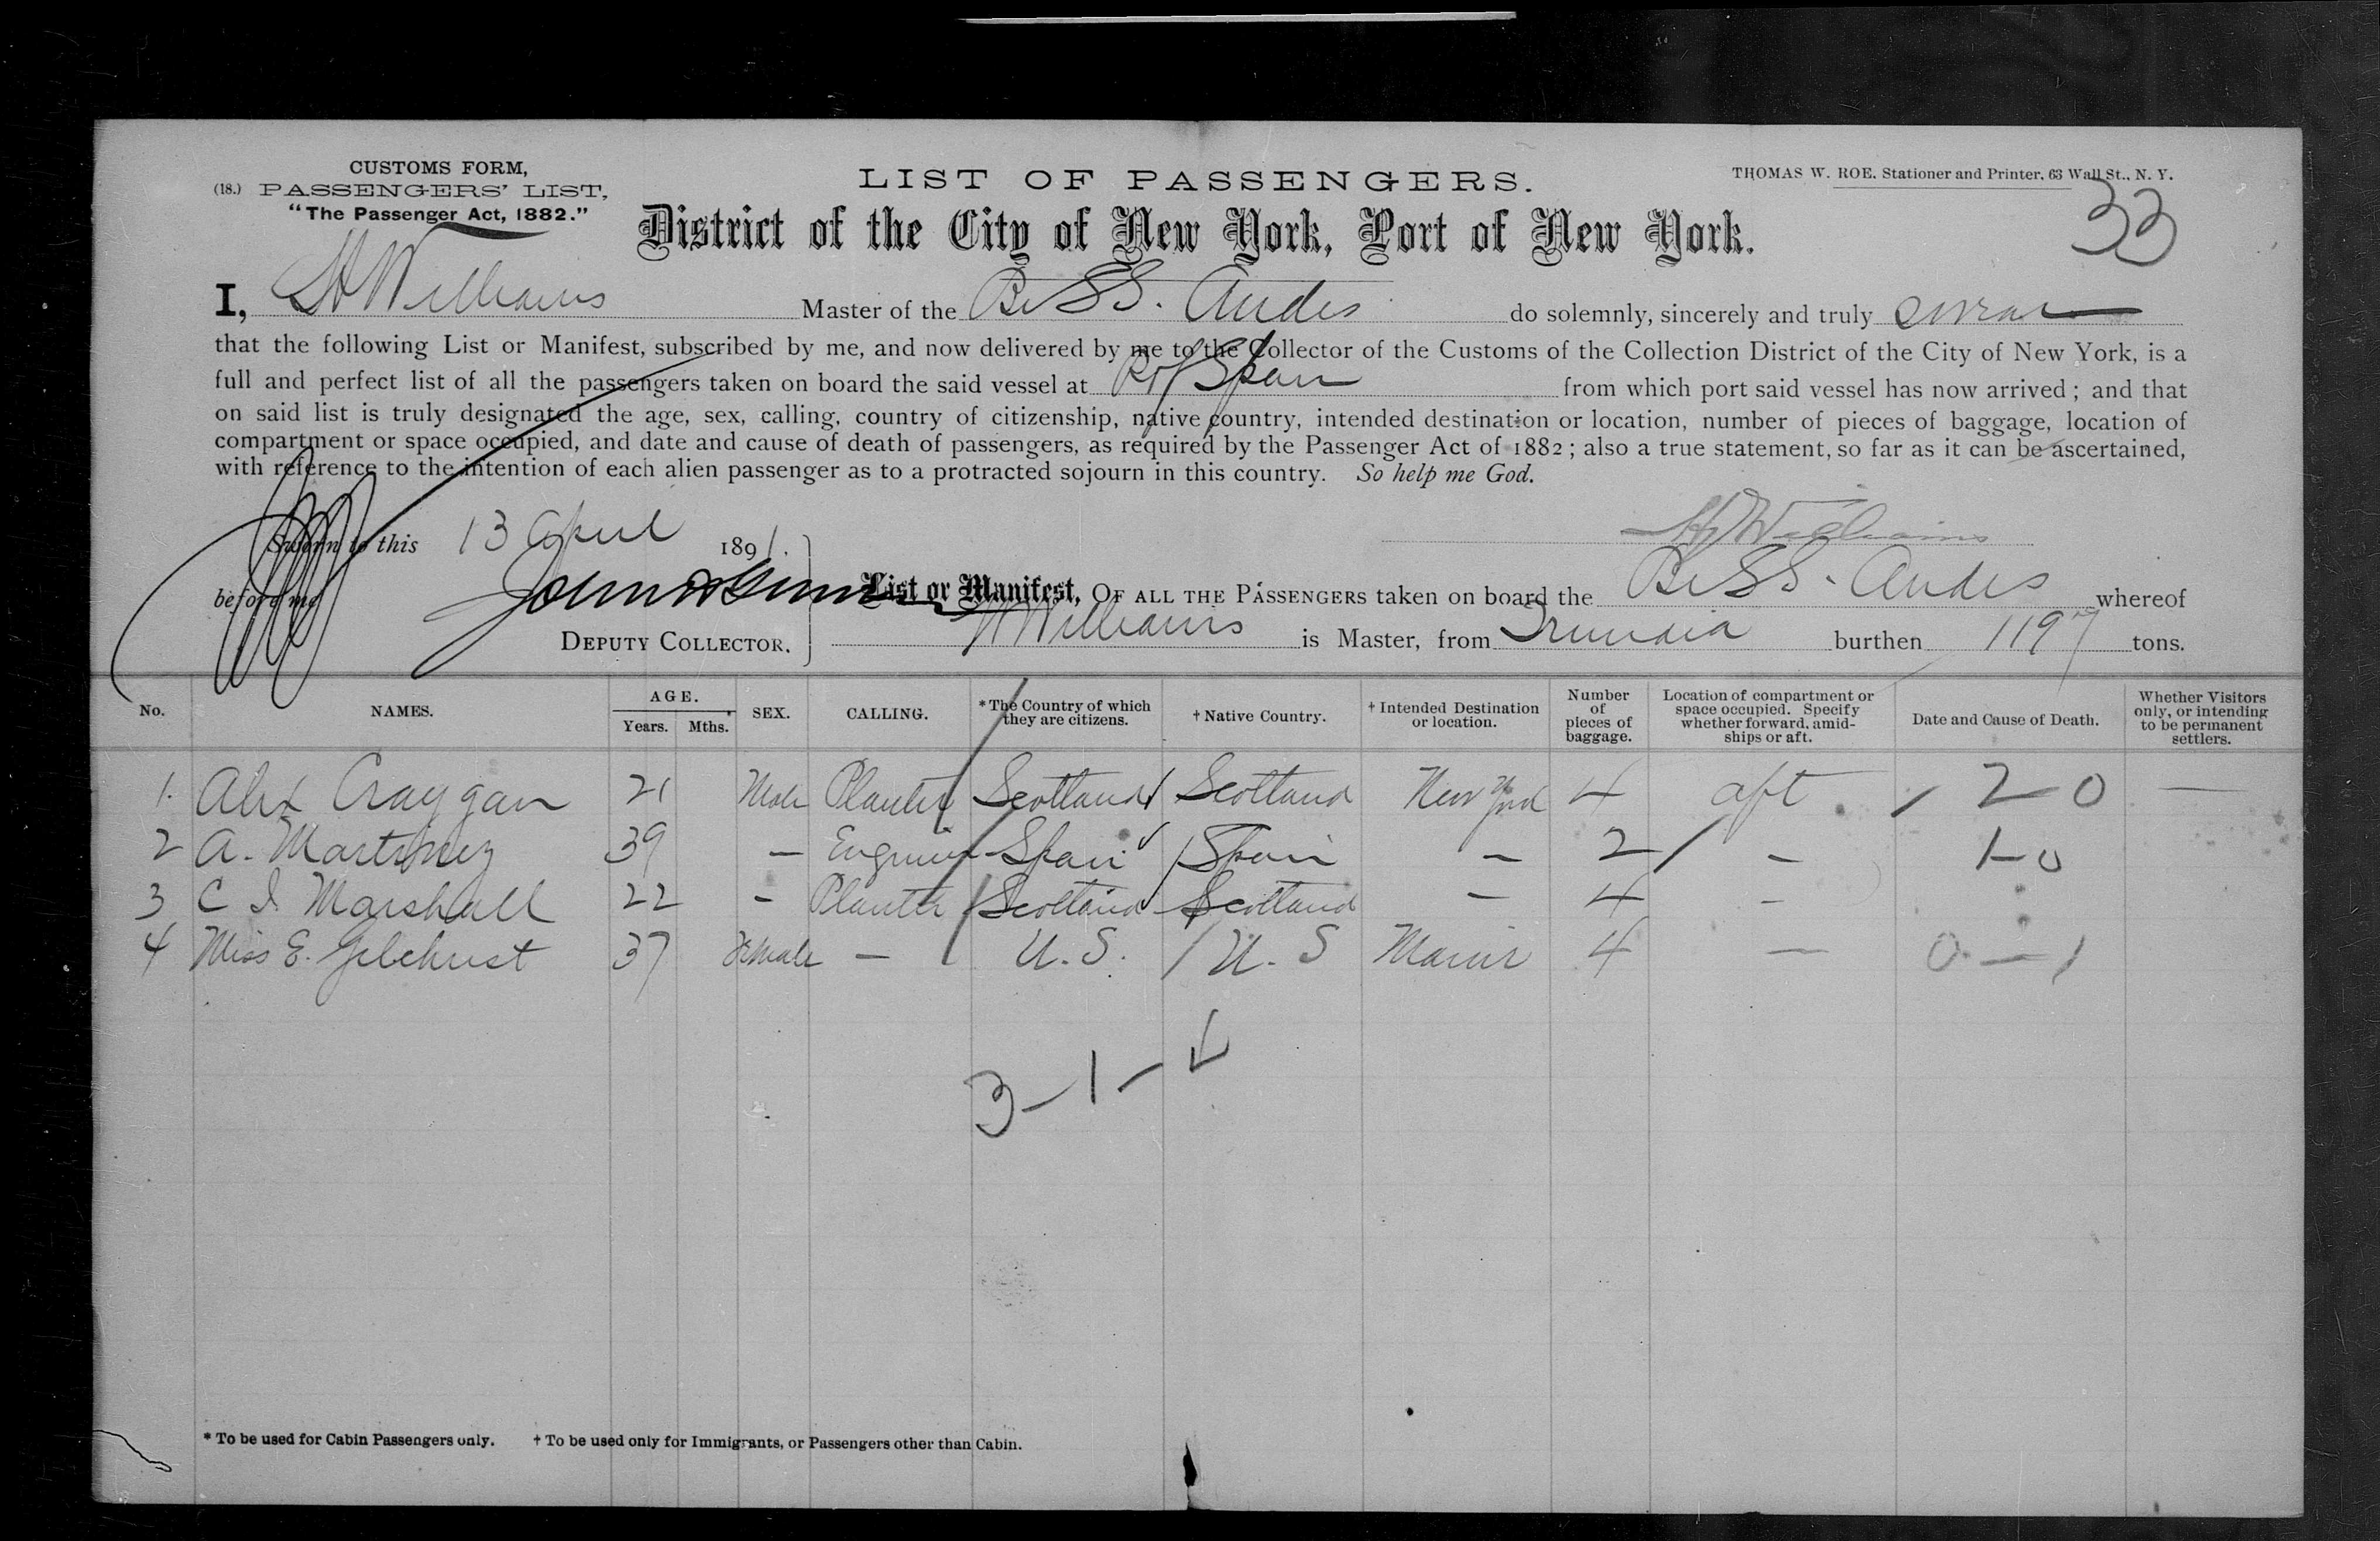 CUSTOMS FORM,
(18.) PASSENGERS' LIST,
"The Passenger Act, 1882."
LIST OF PASSENGERS.
THOMAS W. ROE. Stationer and Printer. 63 Wall St., N. Y.
District of the City of New York, Port of New York.
33
I, H Williams Master of the Br SS. Andes do solemnly, sincerely and truly swear
that the following List or Manifest, subscribed by me, and now delivered by me to the Collector of the Customs of the Collection District of the City of New York, is a
full and perfect list of all the passengers taken on board the said vessel at P of Spain from which port said vessel has now arrived; and that
on said list is truly designated the age, sex, calling, country of citizenship, native country, intended destination or location, number of pieces of baggage, location of
compartment or space occupied, and date and cause of death of passengers, as required by the Passenger Act of 1882; also a true statement, so far as it can be ascertained,
with reference to the intention of each alien passenger as to a protracted sojourn in this country. So help me God.
Sworn to this 13 April 1891.
H Williams
before me
DEPUTY COLLECTOR.
List or Manifest, OF ALL THE PASSENGERS taken on board the Br SS. Andes whereof
H Williams is Master, from burthen 1197 tons.
No. NAMES. AGE. Years. Mths. SEX. CALLING. *The Country of which they are citizens. †Native Country. †Intended Destination or location. Number of pieces of baggage. Location of compartment or space occupied. Specify whether forward, amidships or aft. Date and Cause of Death. Whether Visitors only, or intending to be permanent settlers.
1. Alex Craygan 21 Male Planter Scotland Scotland New York 4 aft 2-0 —
2 A. Martinez 39 — Engineer Spain Spain — 2 — 1-0
3 C I. Marshall 22 - Planter Scotland Scotland — 4 -
4 Miss E. Gilchrist 37 Female — U. S. U. S 4 — 0-1
3-1-
* To be used for Cabin Passengers only. † To be used only for Immigrants, or Passengers other than Cabin.